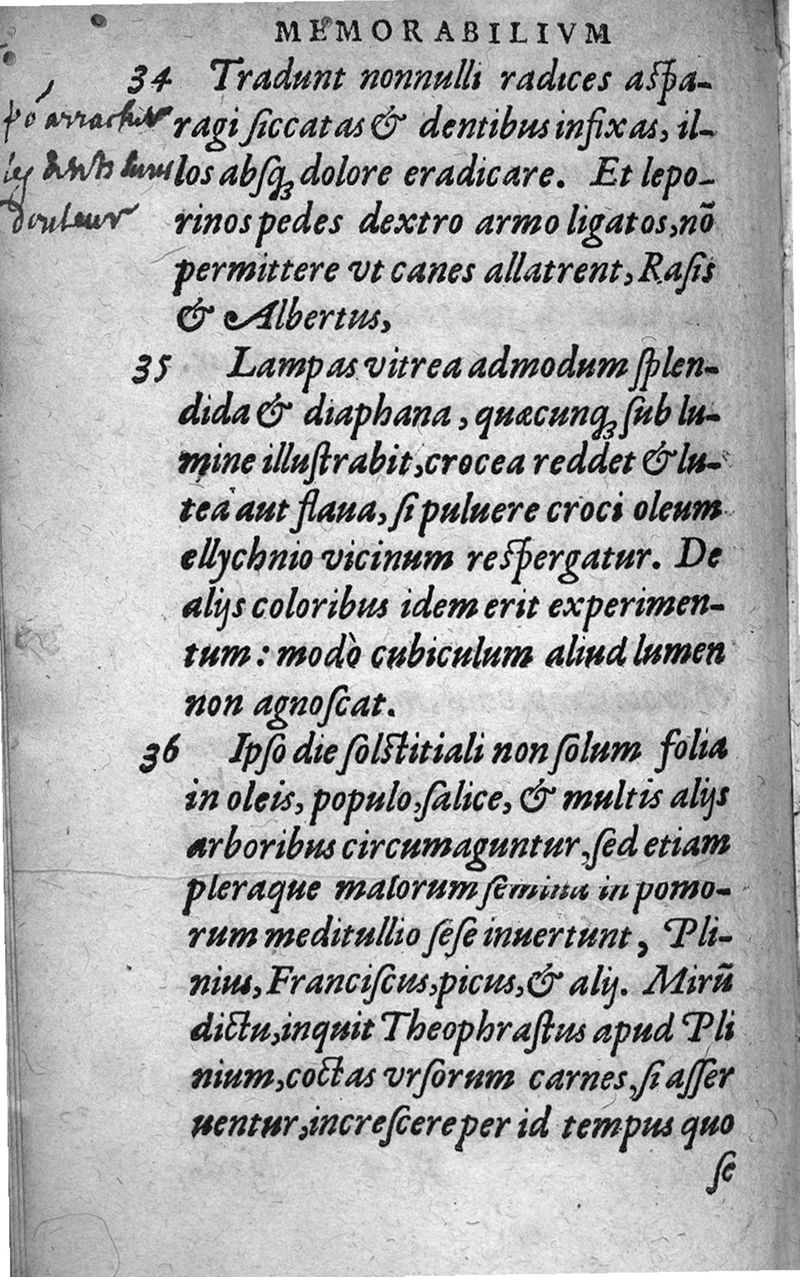 MEMORABILIVM
34 Tradunt nonnulli radices aſpa-
ragi ſiccatas & dentibus infixas, il-
los abſqꝫ dolore eradicare. Et lepo-
rinos pedes dextro armo ligatos, nō
permittere vt canes allatrent, Raſis
& Albertus,
po arracher
les dents sans
douleur
35 Lampas vitrea admodum ſplen-
dida & diaphana, quæcunqꝫ ſub lu-
mine illuſtrabit, crocea reddet & lu-
tea aut flaua, ſi puluere croci oleum
ellychnio vicinum reſpergatur. De
alijs coloribus idem erit experimen-
tum: modò cubiculum aliud lumen
non agnoſcat.
36 Ipſo die ſolſtitiali non ſolum folia
in oleis, populo, ſalice, & multis alijs
arboribus circumaguntur, ſed etiam
pleraque malorum ſemina in pomo-
rum meditullio ſeſe inuertunt, Pli-
nius, Franciſcus, picus, & alij. Mirū
dictu, inquit Theophraſtus apud Pli
nium, coctas vrſorum carnes, ſi aſſer
uentur, increſcere per id tempus quo
ſe